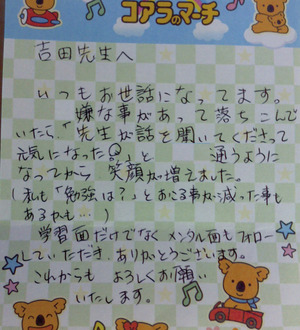 コアラのマーチ
吉田先生へ
いつもお世話になってます。
嫌な事があって落ちこんで
いたら、「先生が話を聞いてくださって
元気になった」と 通うように
なってから 笑顔が増えました。
(私も「勉強は?」とおこる事が減った事も
あるかも…)
学習面だけでなくメンタル面もフォロー
していただき、ありがとうございます。
これからも よろしくお願い
いたします。